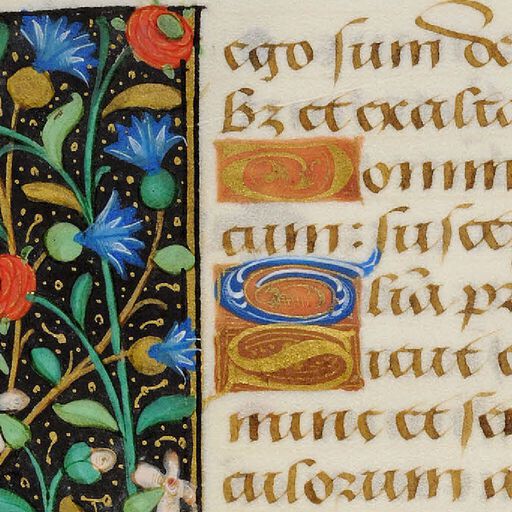 ego sum de
bꝫ et exalta
Domin
cum: suscep
Glīa pr
Sicut e
nunc et se
culorum a